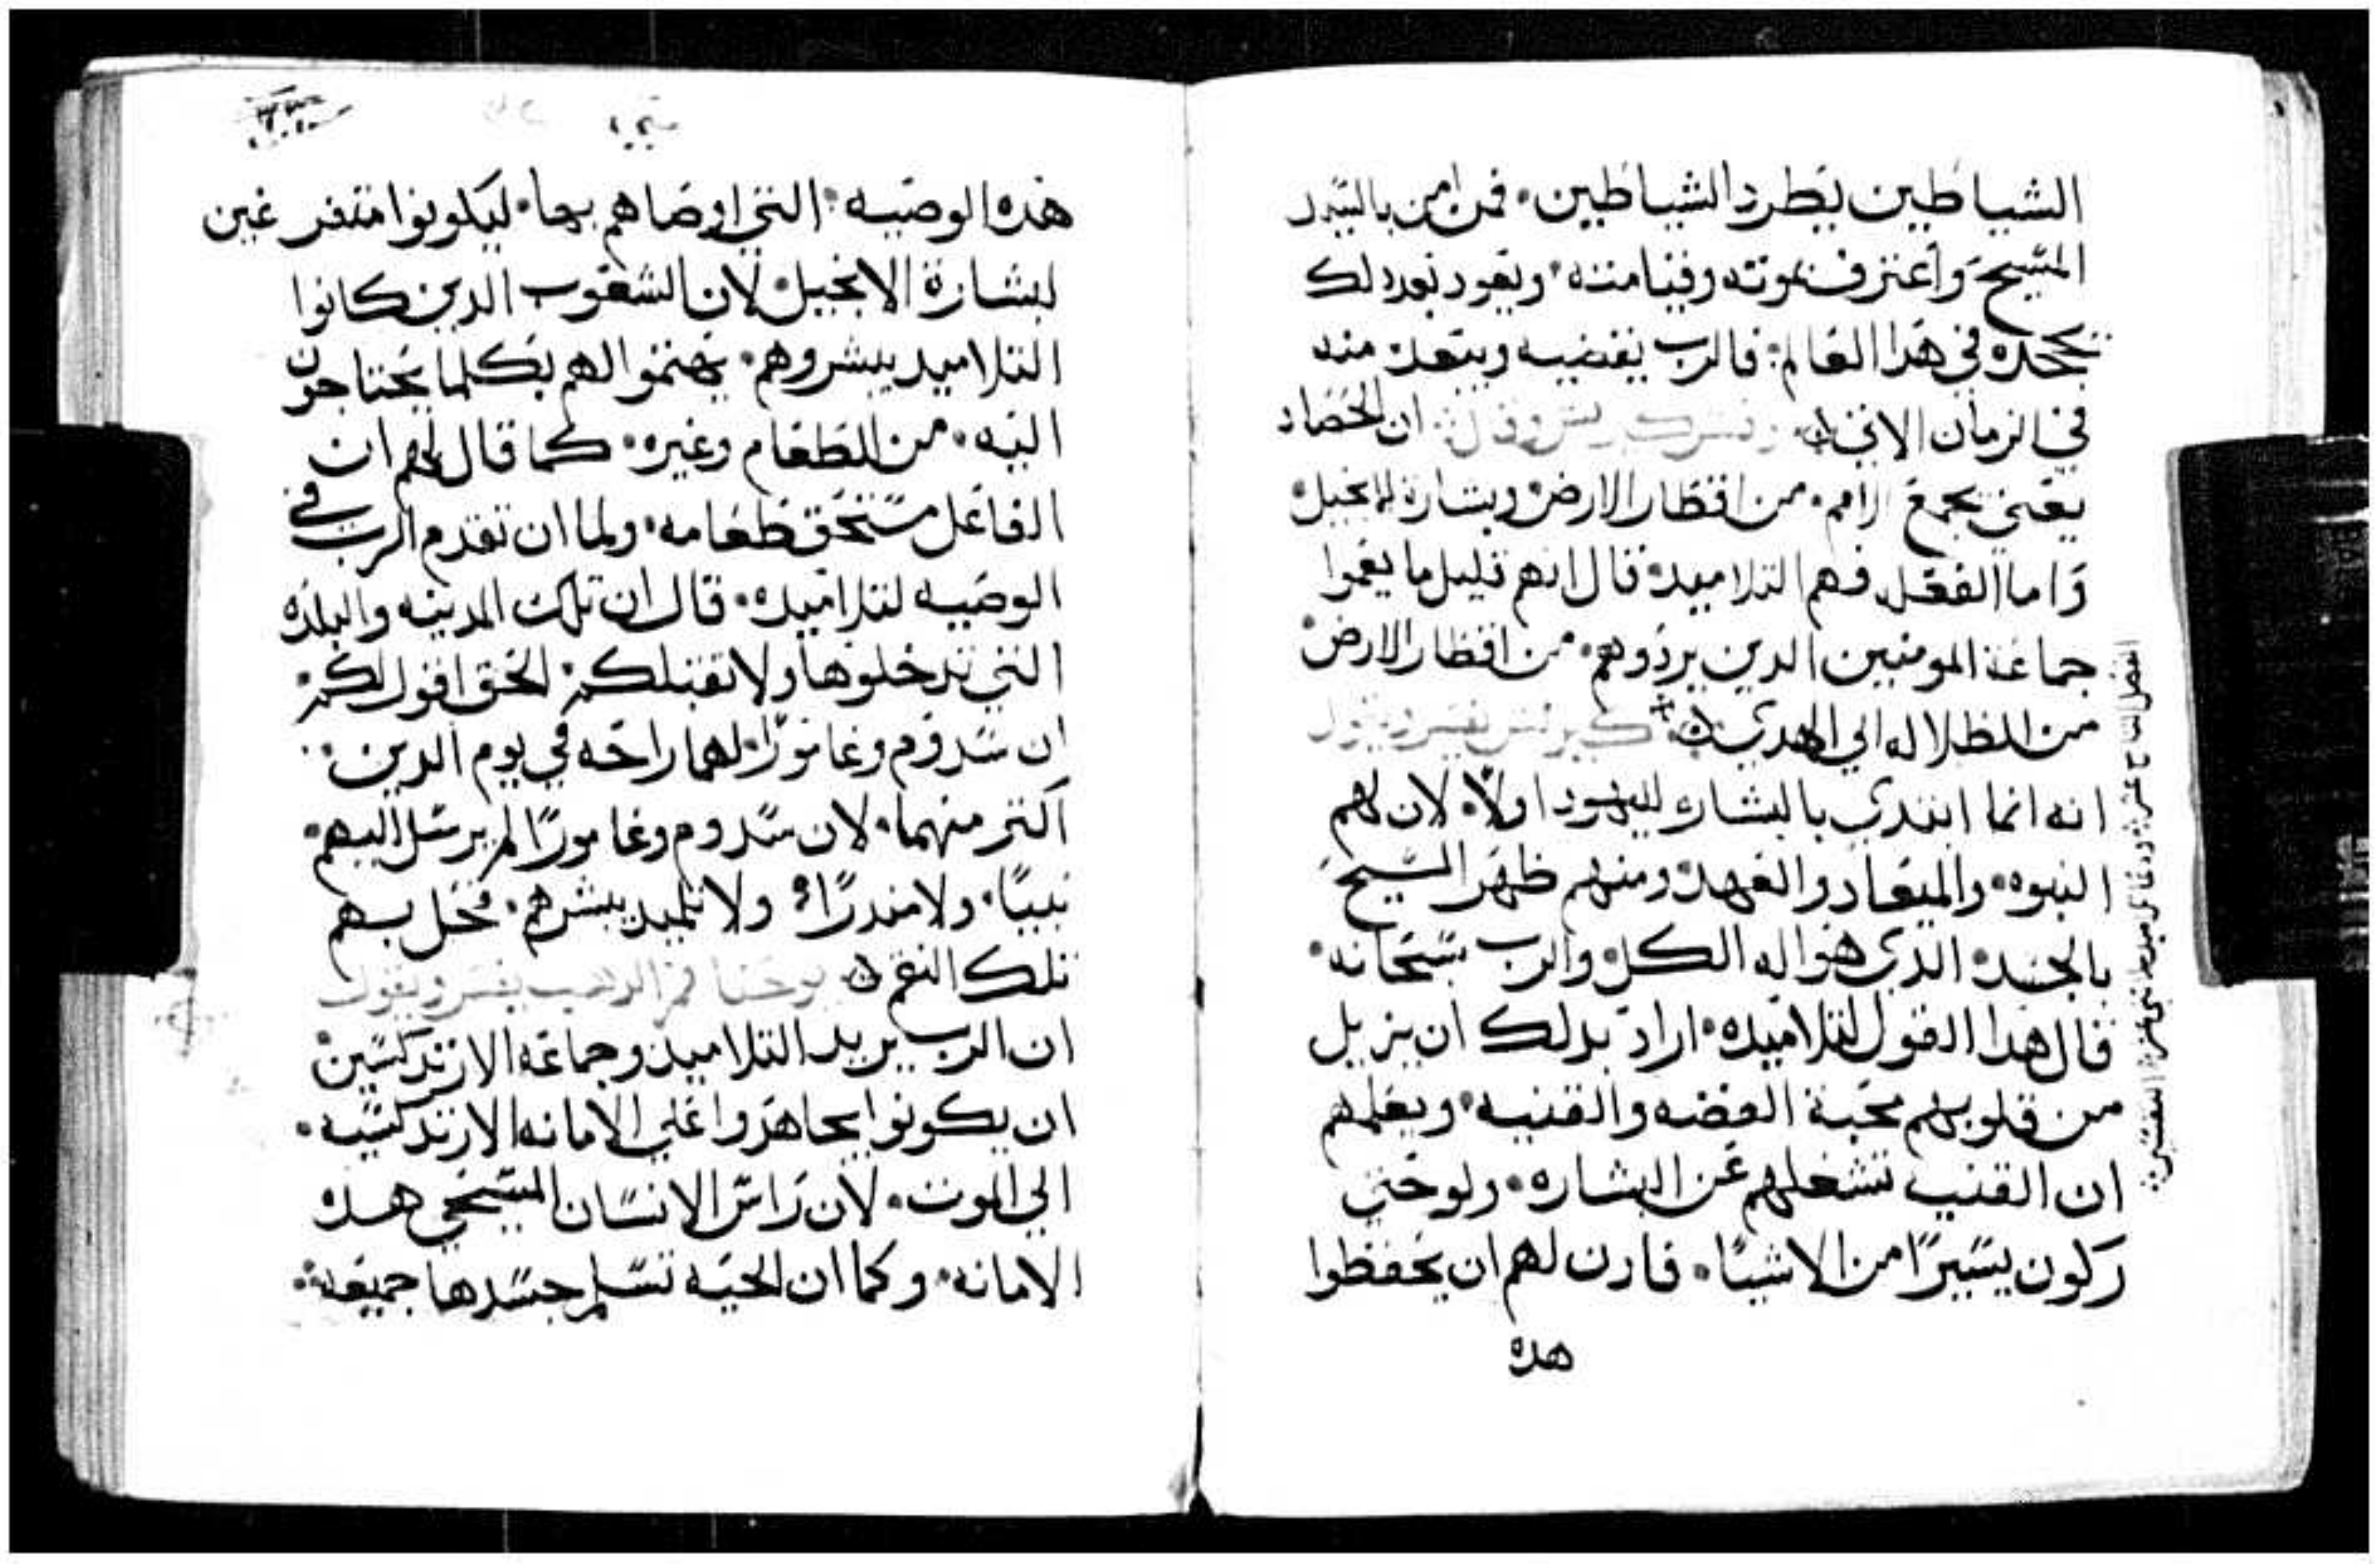 الشياطين يطرد الشياطين٠ فمن امن بالسيد
المسيح واعترف بموته وقيامته٠ ويعود بعد دلك
يجحده في هدا العالم٠ فالرب يقضيه ويبعد منه
في الزمان الاتي ٠ وفسر كيرلس وقال٠ ان الحصاد
يعني بجمع الامم٠ من اقطار الارض وبشارة الانجيل٠
واما الفعله فهم التلاميد٠ قال انهم قليل ما يعموا
جماعة المومنين الدين يردوهم٠ من اقطار الارض٠
من الظلاله الي الهدي ٠ كيرلس يفسر ويقول
انه انما ابتدي بالبشاره لليهود اولاً٠ لان لهم
النبوه٠ والميعاد والعهد٠ ومنهم ظهر المسيح
بالجسد٠ الدي هو اله الكل٠ والرب سبحانه٠
قال هدا القول لتلاميده٠ اراد بدلك ان يزيل
من قلوبهم محبة الفضه والقنيه٠ ويعلمهم
ان القنيه تشغلهم عن البشاره٠ ولو حتي
يكون يسيراً من الاشيا٠ فادن لهم ان يحفظوا
هده
هده الوصيه٠ التي اوصاهم بها٠ ليكونوا متفرغين
لبشارة الانجيل٠ لان الشعوب الدين كانوا
التلاميد يبشروهم٠ يهتموا لهم بكلما يحتاجون
اليه٠ من الطعام وغيره٠ كما قال لهم ان
الفاعل مستحق طعامه٠ ولما ان تقدم الرب في
الوصيه لتلاميده٠ قال ان تلك المدينه والبلده
التي تدخلوها ولا تقبلكم٠ الحق اقول لكم٠
ان سدوم وغامورا٠ لهما راحه في يوم الدين٠
اكتر منهما٠ لان سدوم وغامورا لم يرسل اليهم٠
نبياً٠ ولا مندراً٠ ولا تلميد يبشرهم٠ فحل بهم
تلك النقم ٠ يوحنا فم الدهب يفسر ويقول
ان الرب يريد التلاميد وجماعة الارتدكسيين٠
ان يكونوا يجاهدوا علي الامانه الارتدكسيه٠
الي الموت٠ لان راس الانسان المسيحي هده
الامانه٠ وكما ان الحيه تسلم جسدها جميعه٠